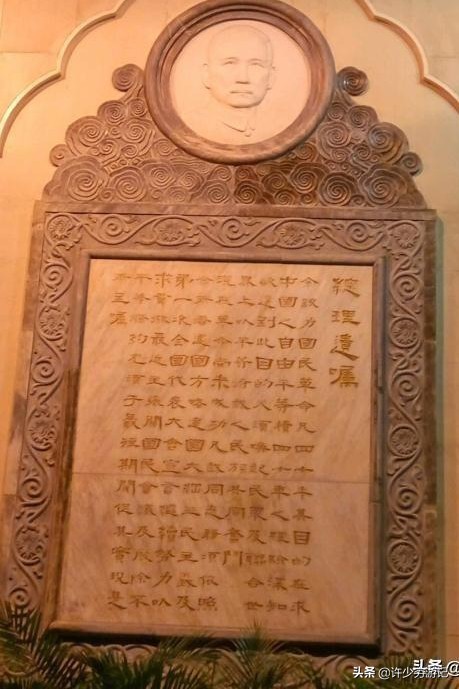 總理遺囑
余致力國民革命凡四十年其目的在求
中國之自由平等積四十年之經驗深知
欲達到此目的必須喚起民眾及聯合世
界上以平等待我之民族共同奮鬥
現在革命尚未成功凡我同志務須依照
余所著建國方略建國大綱三民主義及
第一次全國代表大會宣言繼續努力以
求貫徹最近主張開國民會議及廢除不
平等條約尤須於最短期間促其實現是
所至囑
头条 @
头条 @许少夯游记